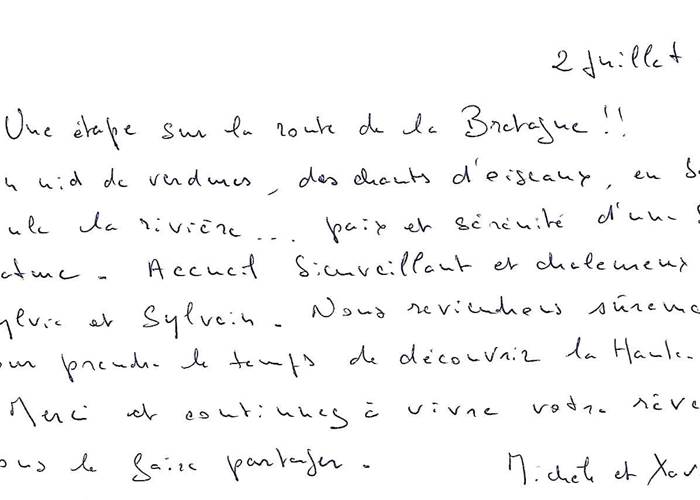 2 Juillet
Une étape sur la route de la Bretagne !!
nid de verdures, des chants d'oiseaux, en
la rivière... paix et sérénité d'une
Accueil bienveillant et chaleureux
et Sylvain. Nous reviendrons
prendre le temps de découvrir la Haute.
Merci et continuez à vivre votre rêve
le faire partager.
Michèle et